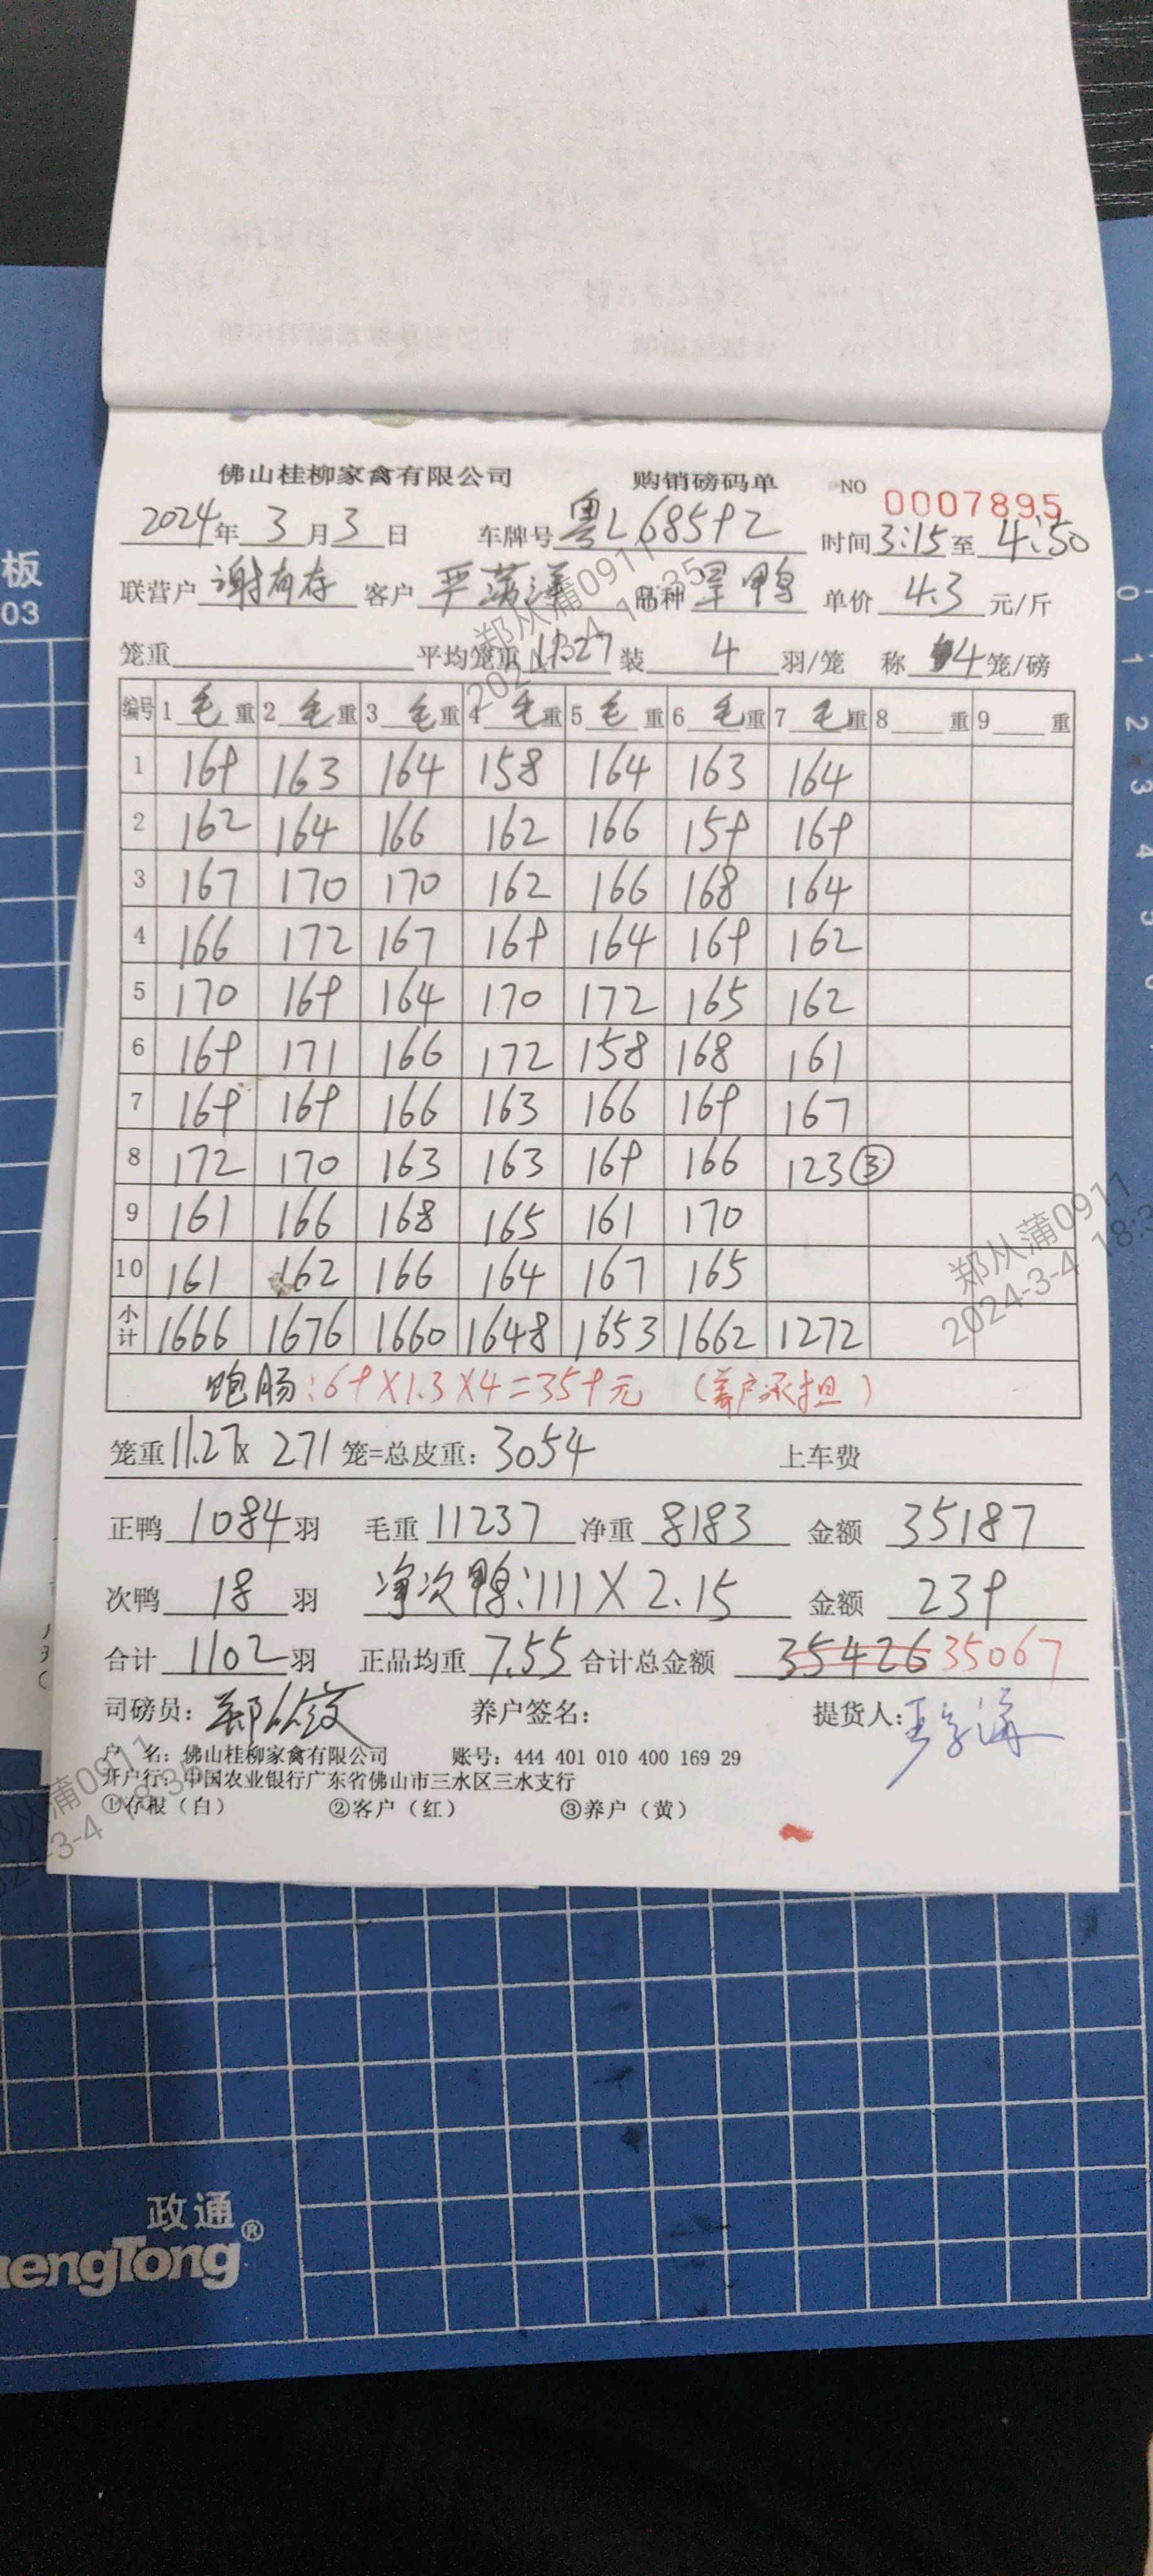 佛山桂柳家禽有限公司 购销磅码单 NO 0007895
2024年 3月3日 车牌号 粤L68592 时间 3:15至 4:50
联营户 谢有存 客户 严 品种 旱鸭 单价 4.3 元/斤
笼重 平均笼重 11.27 装 4 羽/笼 称 4 笼/磅
编号 1 毛重 2 毛重 3 毛重 4 毛重 5 毛重 6 毛重 7 毛重 8 重 9 重
1 169 163 164 158 164 163 164
2 162 164 166 162 166 159 169
3 167 170 170 162 166 168 164
4 166 172 167 169 164 169 162
5 170 169 164 170 172 165 162
6 169 171 166 172 158 168 161
7 169 169 166 163 166 169 167
8 172 170 163 163 169 166 123③
9 161 166 168 165 161 170
10 161 162 166 164 167 165
小计 1666 1676 1660 1648 1653 1662 1272
饱肠:69X1.3X4=359元 (养户承担)
笼重11.27x 271 笼=总皮重: 3054 上车费
正鸭 1084 羽 毛重 11237 净重 8183 金额 35187
次鸭 18 羽 净次鸭:111X2.15 金额 239
合计 1102 羽 正品均重 7.55 合计总金额 35426 35067
司磅员: 郑 养户签名: 提货人:
户 名: 佛山桂柳家禽有限公司 账号: 444 401 010 400 169 29
开户行: 中国农业银行广东省佛山市三水区三水支行
①存根(白) ②客户(红) ③养户(黄)
郑从蒲0911
2024-3-4 18:35
郑从蒲0911
2024-3-4 18:3
郑从蒲0911
24-3-4 18:35
板
03
0
1
2
3
4
5
6
政通®
hengTong